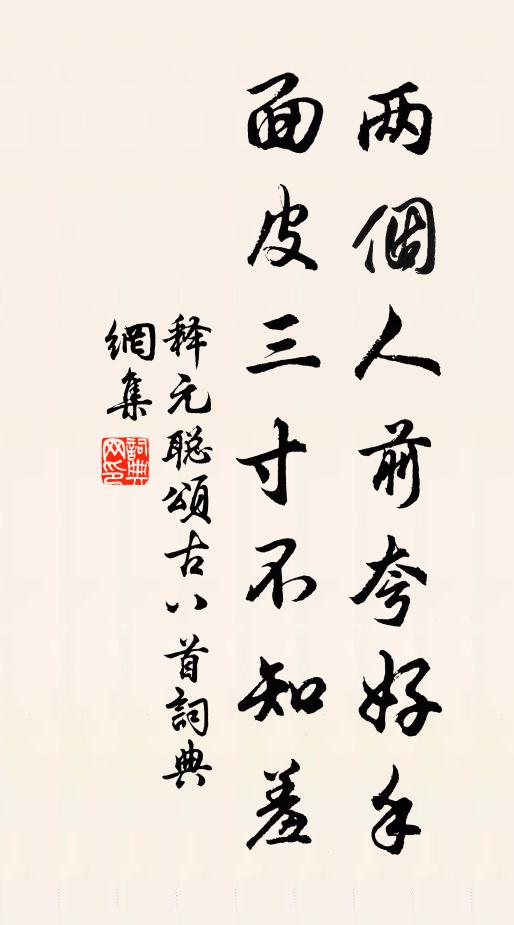 两個人前夸好手
面皮三寸不知羞
释元聪頌古八首詞典
網集
詞典網印